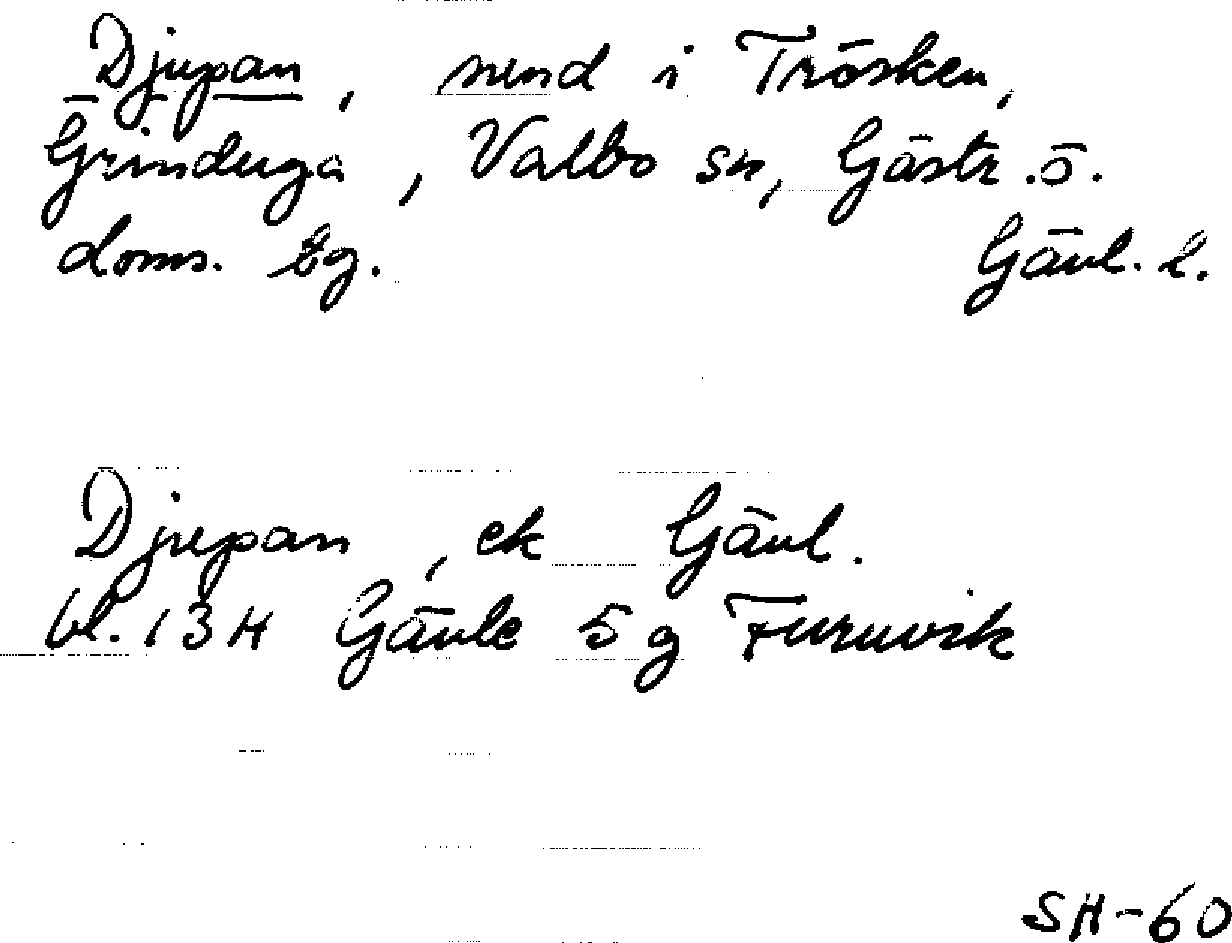 Djupan, sund i Trösken,
Grinduga, Valbo sn, Gästr. ö.
doms. tg. Gävl. l.
Djupan, ek Gävl.
bl. 13 H Gävle 5 g Furuvik
SH-60